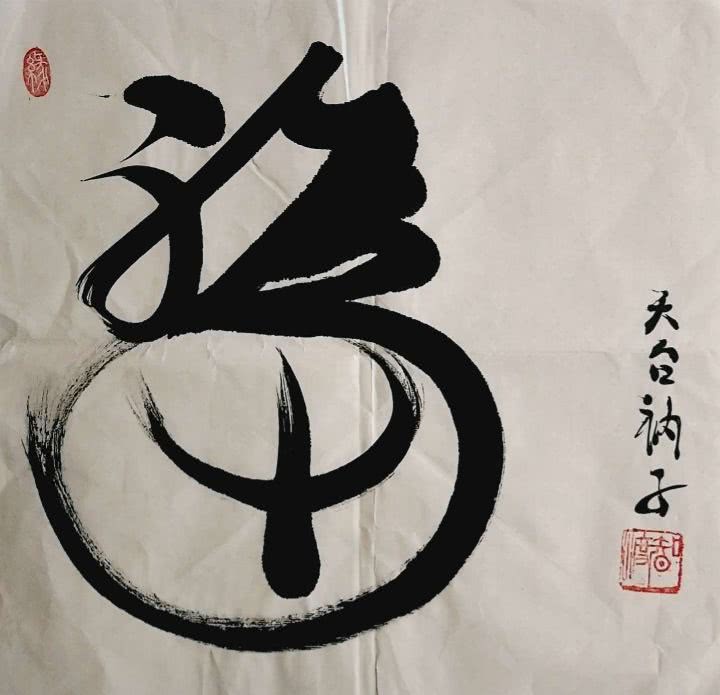 禅
天台衲子